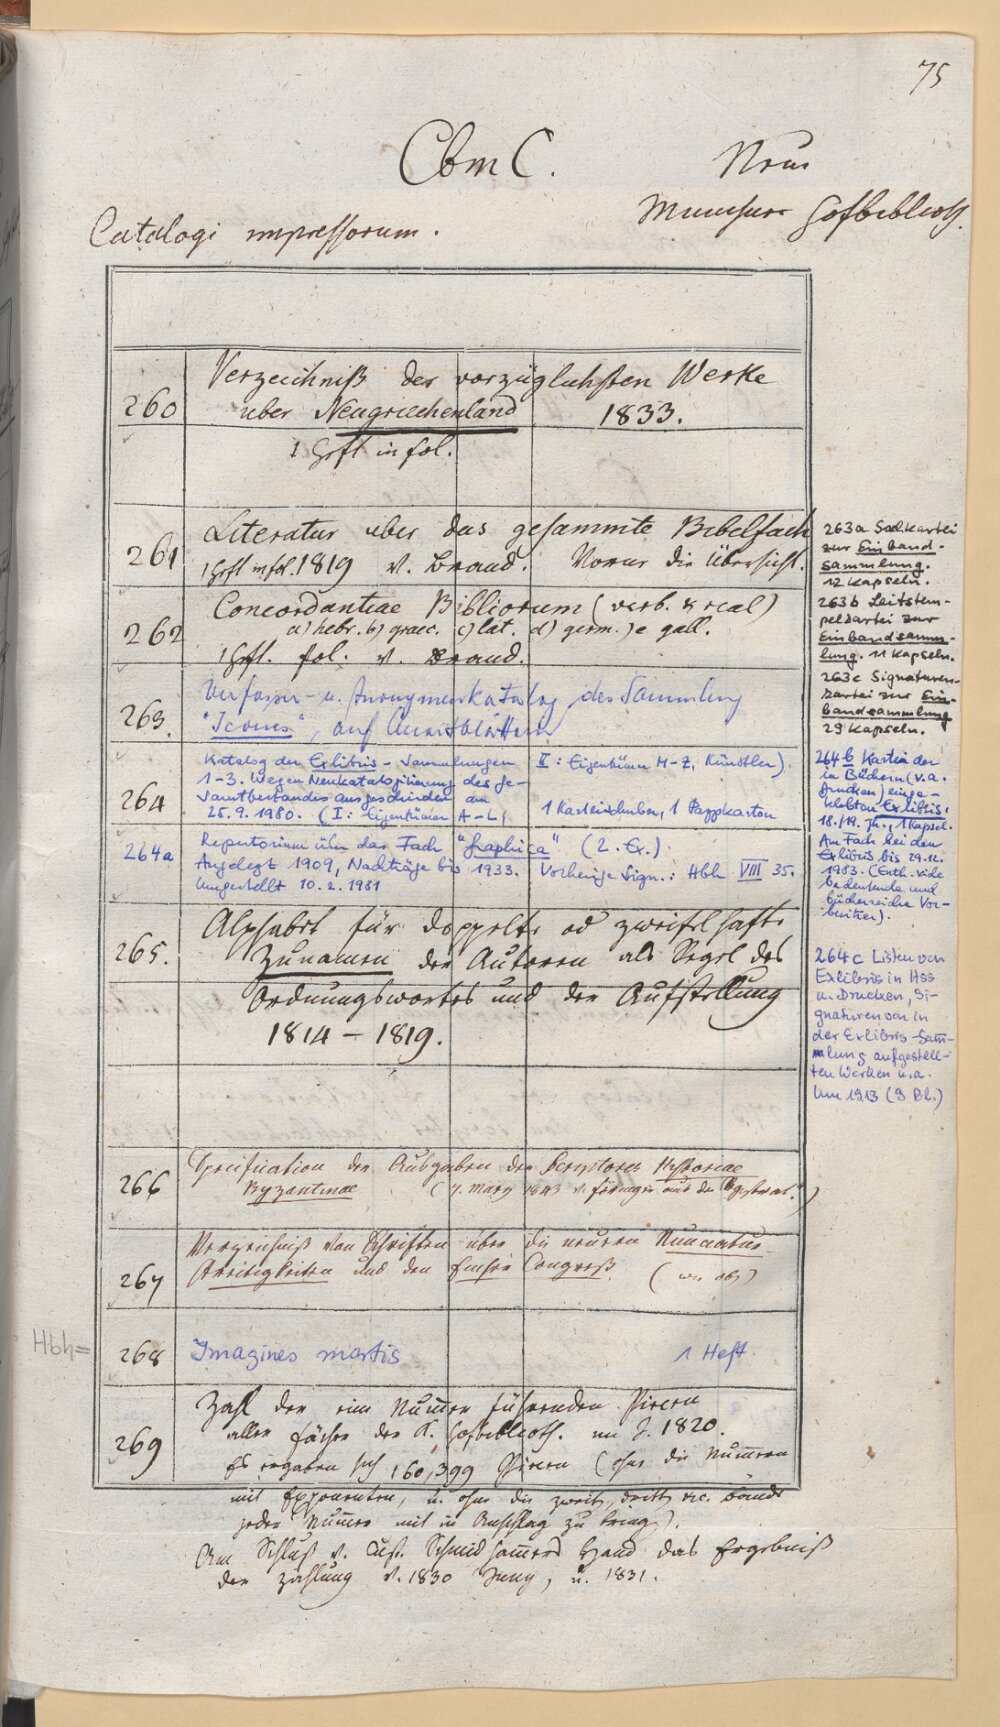 75
Cbm C.
Neue
Münchner Hofbiblioth.
Catalogi impressorum.
260
Verzeichniß der vorzüglichsten Werke
über Neugriechenland 1833.
1 Heft in fol.
261
Literatur über das gesammte Bibelfach
1 Heft in fol. 1819 v. Brand. Voraus die Übersicht.
262
Concordantiae Bibliorum (verb. & real)
a) hebr. b) graec. c) lat. d) germ. e) gall.
1 Hft. fol. v. Brand.
263.
Verfasser- u. Anonymenkatalog des Sammlung
"Icones", auf Quartblättern
264
Katalog der Exlibris-Sammlungen
1-3. Wegen Neukatalogisierung des Ge-
samtbestandes ausgeschieden am
25.9.1980. (I: Eigentümer A-L,
II: Eigentümer M-Z, Künstler)
1 Karteischuber, 1 Pappkarton
264a
Repertorium über das Fach "Graphica" (2. Ex.)
Angelegt 1909, Nachträge bis 1933. Vorherige Sign.: Hbh VIII 35.
Umgestellt 10.2.1981
265.
Alphabet für doppelte od zweifelhafte
Zunamen der Autoren als Regel des
Ordnungswortes und der Aufstellung
1814 – 1819.
266
Specification der Ausgaben der Scriptores Historiae
Byzantinae (7. März 1843
267
Verzeichniß von Schriften über die neuern Nunciatur
Streitigkeiten und den Emser Congreß. (wie ob.)
Hbh=
268
Imagines mortis 1 Heft.
269
Zahl der eine Nummer führenden Piecen
aller Fächer der K. Hofbiblioth. im J. 1820.
Es ergaben sich 160,399 Piecen (ohne die Nummern
mit Exponenten, u. ohne die zweite, dritte etc. Bände
jeder Nummer mit in Anschlag zu bring.).
Am Schluß v. Cust. Schmidhammers Hand das Ergebniß
der Zählung v. 1830 Juny, u. 1831.
263a Sachkartei
zur Einband-
sammlung.
12 Kapseln.
263b Leitstem-
pelkartei zur
Einbandsamm-
lung. 11 Kapseln.
263c Signaturen-
kartei zur Ein-
bandsammlung
29 Kapseln.
264b Kartei der
in Büchern (v.a.
Drucken) einge-
klebten Exlibris,
18./19. Jh., 1 Kapsel.
Am Fach bei den
Exlibris bis 29.12.
1983. (Enth. viele
bedeutende und
bücherreiche Vor-
besitzer).
264c Listen von
Exlibris in Hss
u. Drucken, Si-
gnaturen von in
der Exlibris-Samm-
lung aufgestell-
ten Werken u.a.
Um 1913 (9 Bl.)